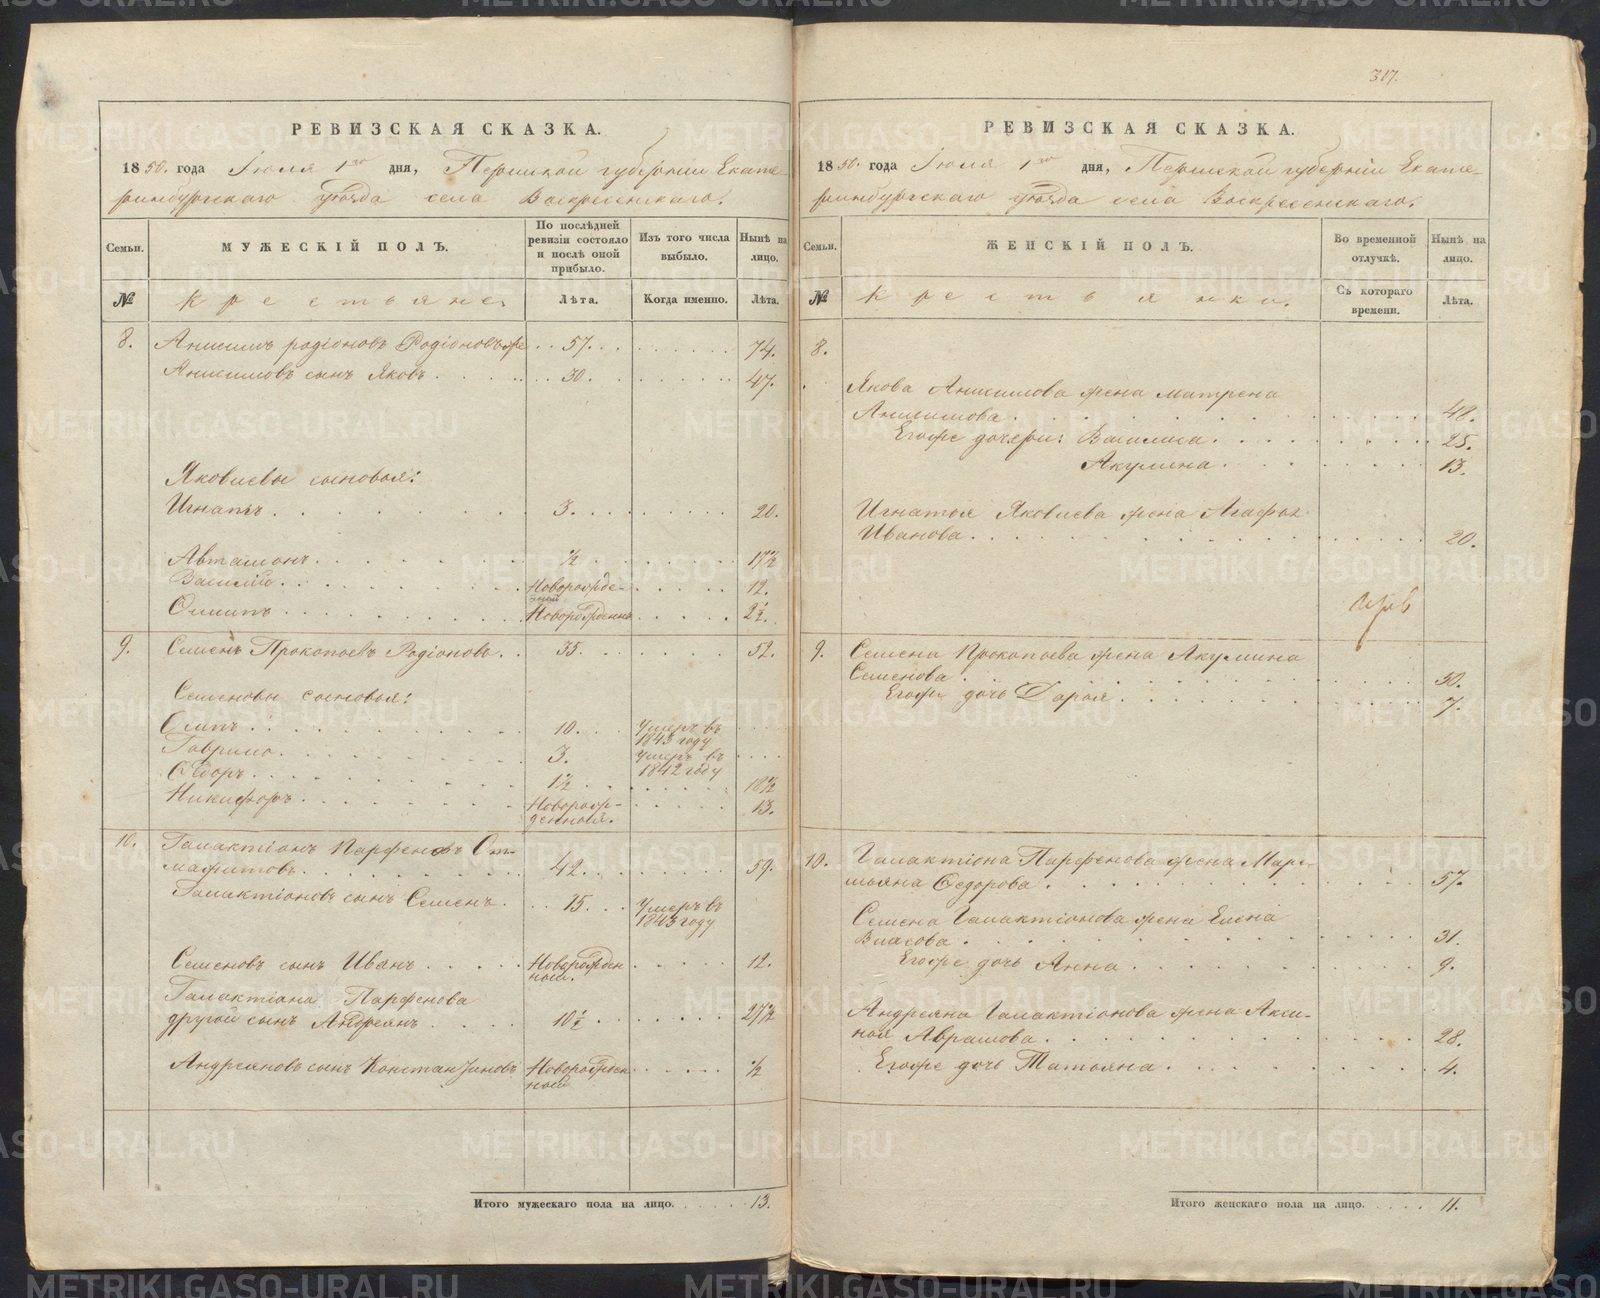 317.
РЕВИЗСКАЯ СКАЗКА.
1850. года Іюля 1го дня, Пермской губерніи Екате
ринбургскаго уѣзда села Воскресенскаго.
Семьи.
МУЖЕСКІЙ ПОЛЪ.
По послѣдней ревизіи состояло и послѣ оной прибыло.
Изъ того числа выбыло.
Нынѣ на лицо.
№
Крестьяне.
Лѣта.
Когда именно.
Лѣта.
8. Анисимъ родіоновъ Родіоновъ же 57. 74.
Анисимовъ сынъ Яковъ 30. 47.
Яковлевы сыновья:
Игнатъ 3. 20.
Автамонъ ½ 17½
Василій Новорожде- 12.
ный
Осипъ Новорожденъ 2½.
9. Семенъ Прокопьевъ Родіоновъ 35. 52.
Семеновы сыновья:
Осипъ 10. Умеръ въ
1843 году
Гаврило 3. Умеръ въ
1842 году
Ѳедоръ 1½ 18½
Никифоръ Новорож- 13.
денной.
10. Галактіонъ Парфеновъ
42. 59.
Галактіоновъ сынъ Семенъ 15. Умеръ въ
1843 году
Семеновъ сынъ Иванъ Новорожден 12.
ной.
Галактіона Парфенова
другой сынъ Андреянъ 10½ 27½
Андреяновъ сынъ Константиновъ Новорожден ½
ной
Итого мужескаго пола на лицо. 13.
РЕВИЗСКАЯ СКАЗКА.
1850. года Іюля 1го дня, Пермской губерніи Екате-
ринбургскаго уѣзда села Воскресенскаго.
Семьи.
ЖЕНСКІЙ ПОЛЪ.
Во временной отлучкѣ.
Нынѣ на лицо.
№
Крестьянки.
Съ котораго времени.
Лѣта.
8.
Якова Анисимова жена Матрена
Анисимова 48.
Егоже дочери: Василиса 25.
Акулина 13.
Игнатья Яковлева жена Агафья
Иванова 20.
9. Семена Прокопьева жена Акулина
Семенова 50.
Егоже дочь Дарья 7.
10. Галактіона Парфенова жена Маре-
мьяна Ѳедорова 57.
Семена Галактіонова жена Елена
Власова 31.
Егоже дочь Анна 9.
Андреяна Галактіонова жена Акси-
нья Аврамова 28.
Егоже дочь Татьяна 4.
Итого женскаго пола на лицо. 11.
METRIKI.GASO-URAL.RU